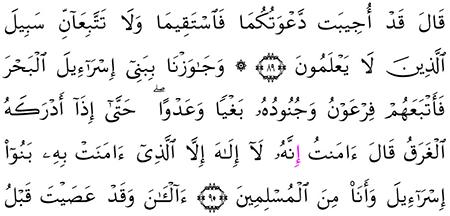 قَالَ قَدۡ أُجِيبَت دَّعۡوَتُكُمَا فَٱسۡتَقِيمَا وَلَا تَتَّبِعَآنِّ سَبِيلَ
ٱلَّذِينَ لَا يَعۡلَمُونَ ٨٩ ۞ وَجَٰوَزۡنَا بِبَنِيٓ إِسۡرَٰٓءِيلَ ٱلۡبَحۡرَ
فَأَتۡبَعَهُمۡ فِرۡعَوۡنُ وَجُنُودُهُۥ بَغۡيٗا وَعَدۡوًاۖ حَتَّىٰٓ إِذَآ أَدۡرَكَهُ
ٱلۡغَرَقُ قَالَ ءَامَنتُ إِنَّهُۥ لَآ إِلَٰهَ إِلَّا ٱلَّذِيٓ ءَامَنَتۡ بِهِۦ بَنُوٓاْ
إِسۡرَٰٓءِيلَ وَأَنَا۠ مِنَ ٱلۡمُسۡلِمِينَ ٩٠ ءَآلۡـَٰٔنَ وَقَدۡ عَصَيۡتَ قَبۡلُ